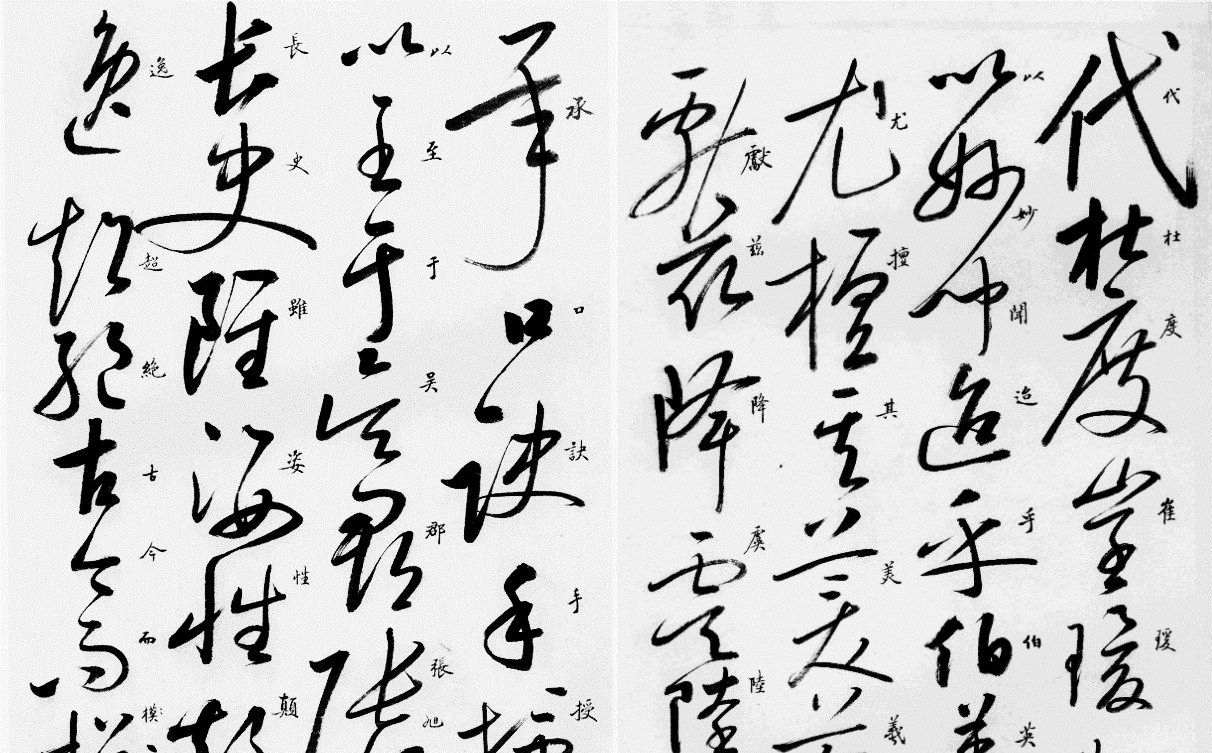 代杜度崔瑗
以妙聞迨乎伯英
尤擅其美羲
獻兹降虞陸
承口訣手授
以至于吴郡張旭
長史雖姿性顛
逸超絶古今而模